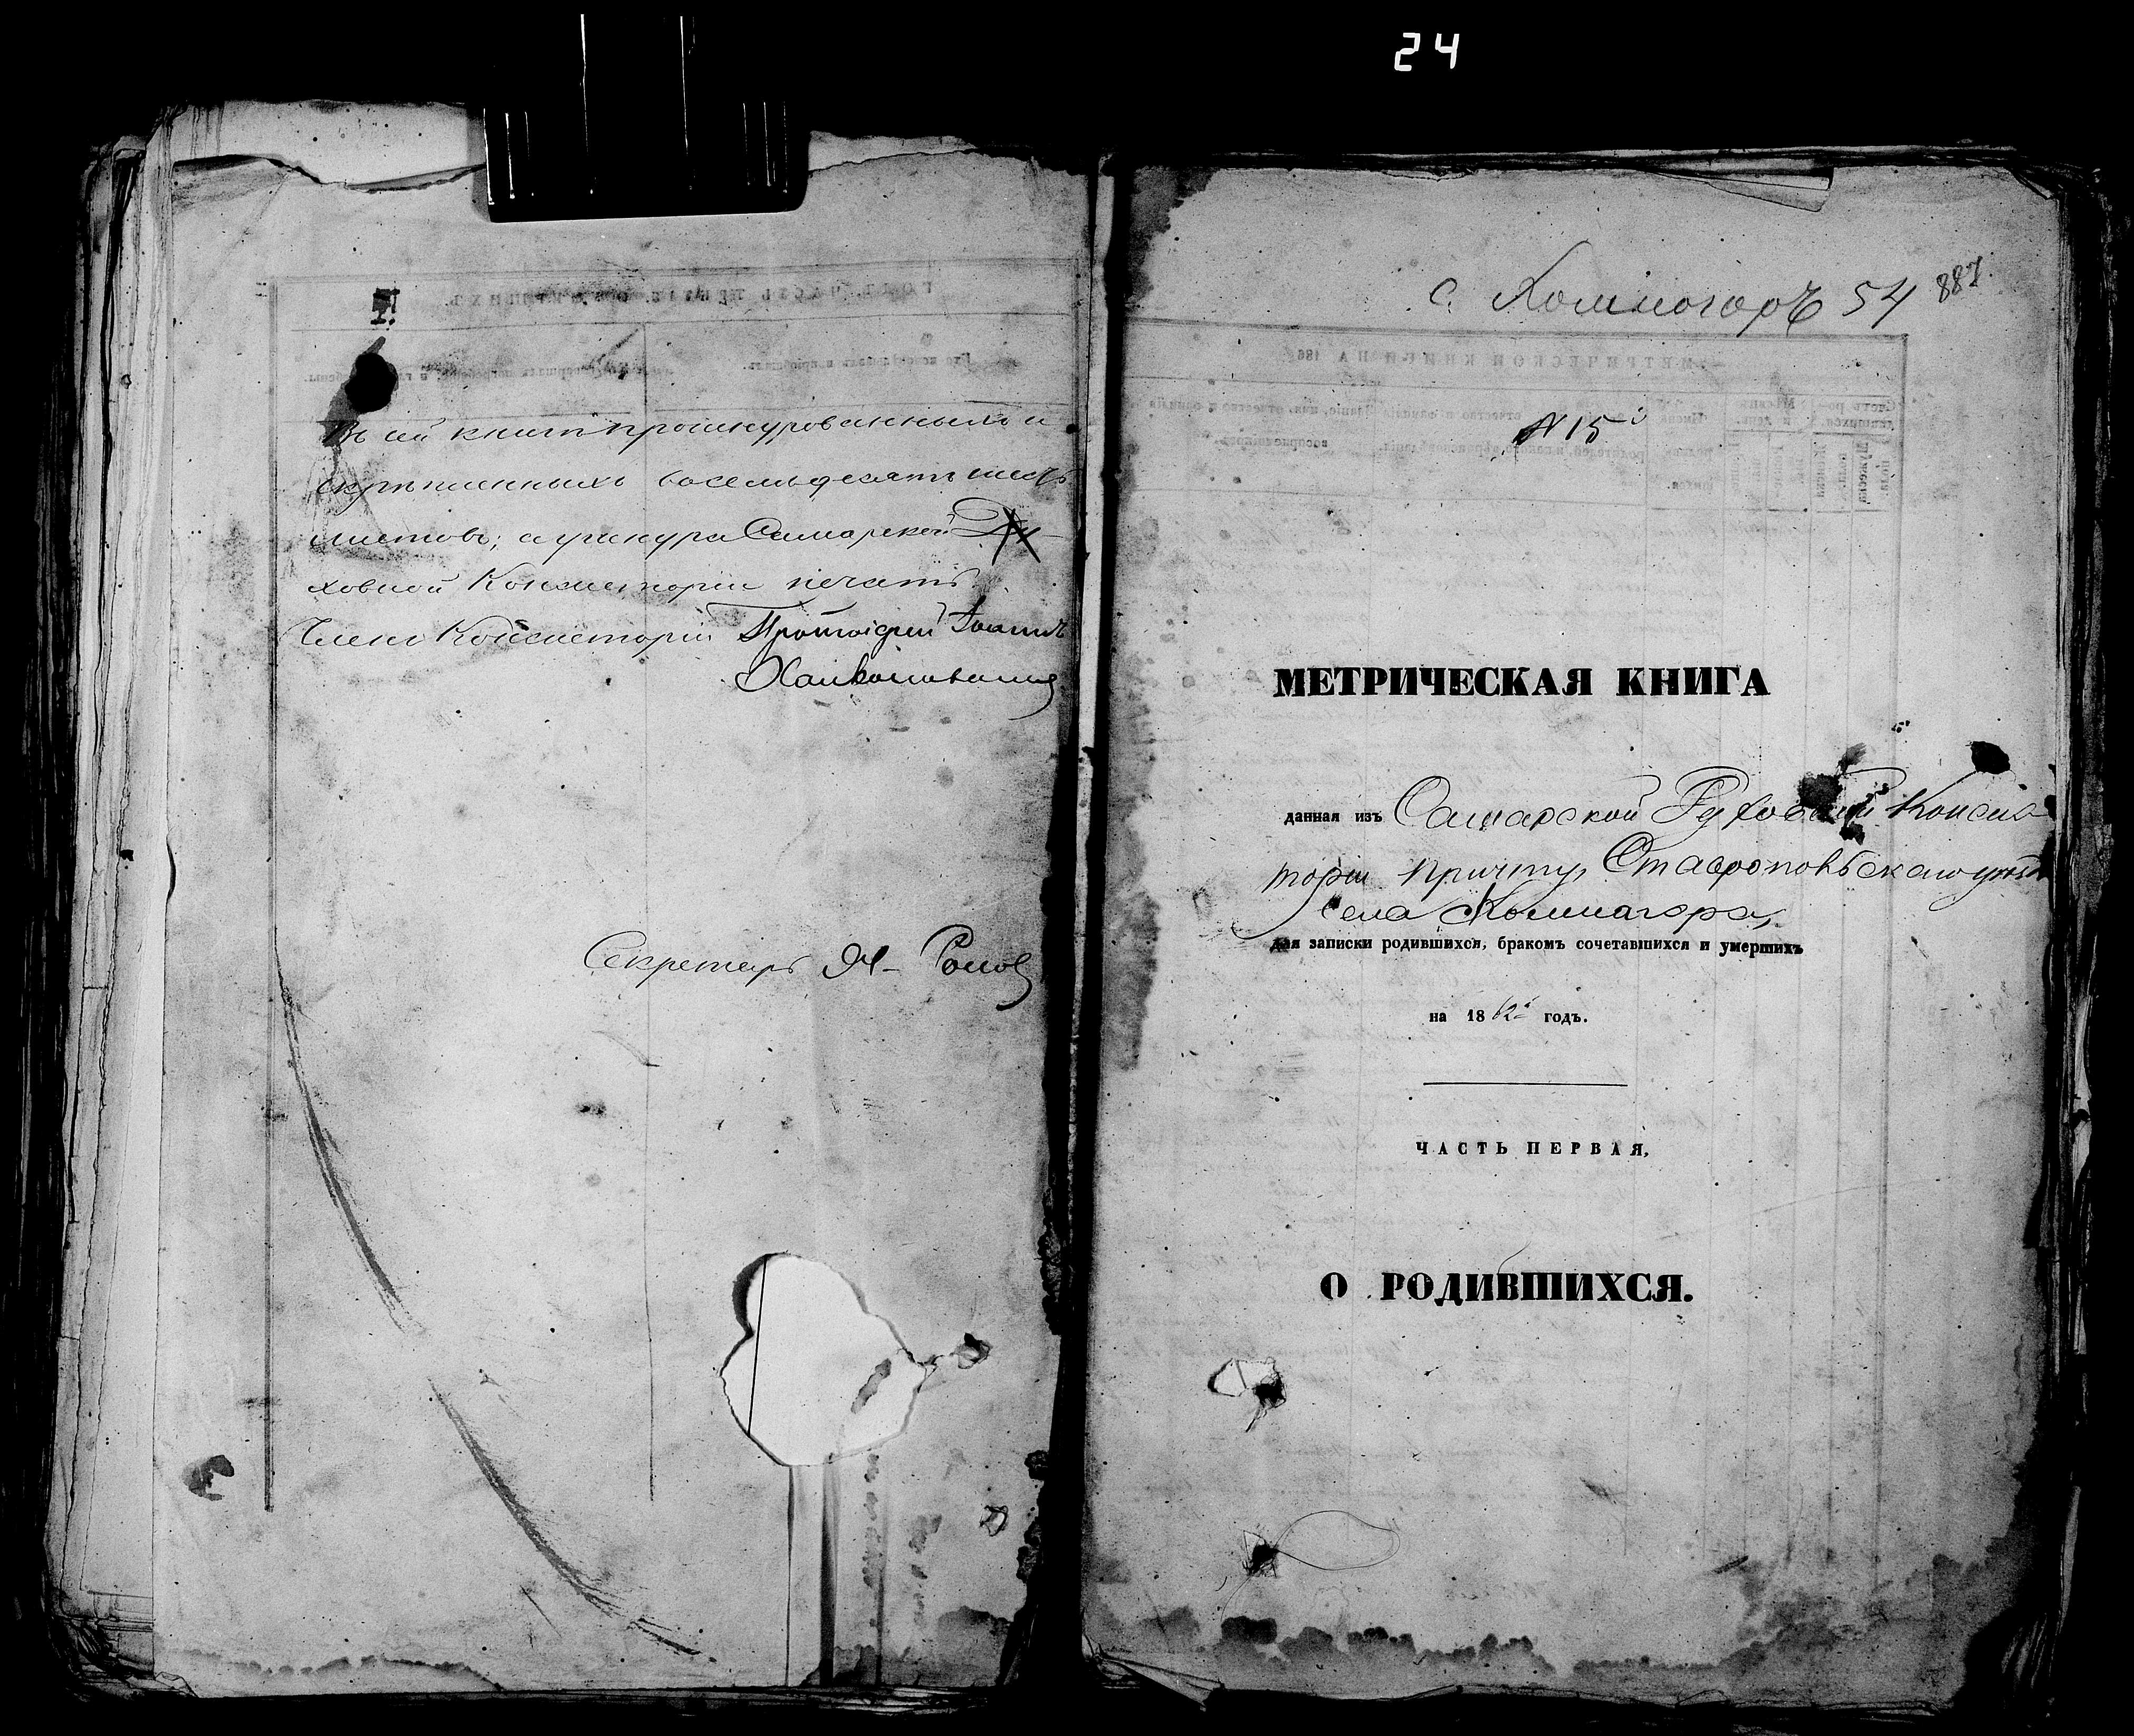 24
Въ сей книгѣ прошнурованныхъ и
скрѣпленныхъ восемьдесятъ шесть
листовъ; а у шнура Самарской Ду-
ховной Консисторіи печать.
Членъ Консисторіи Протоіерей Іоаннъ
Секретарь
с. Кошпогоръ 54 887
№ 15й
МЕТРИЧЕСКАЯ КНИГА
данная изъ Самарской Духовной Консис
торіи причту, Ставропольскаго уѣзда
села
для записки родившихся, бракомъ сочетавшихся и умершихъ
на 1862й годъ.
ЧАСТЬ ПЕРВАЯ,
О РОДИВШИХСЯ.